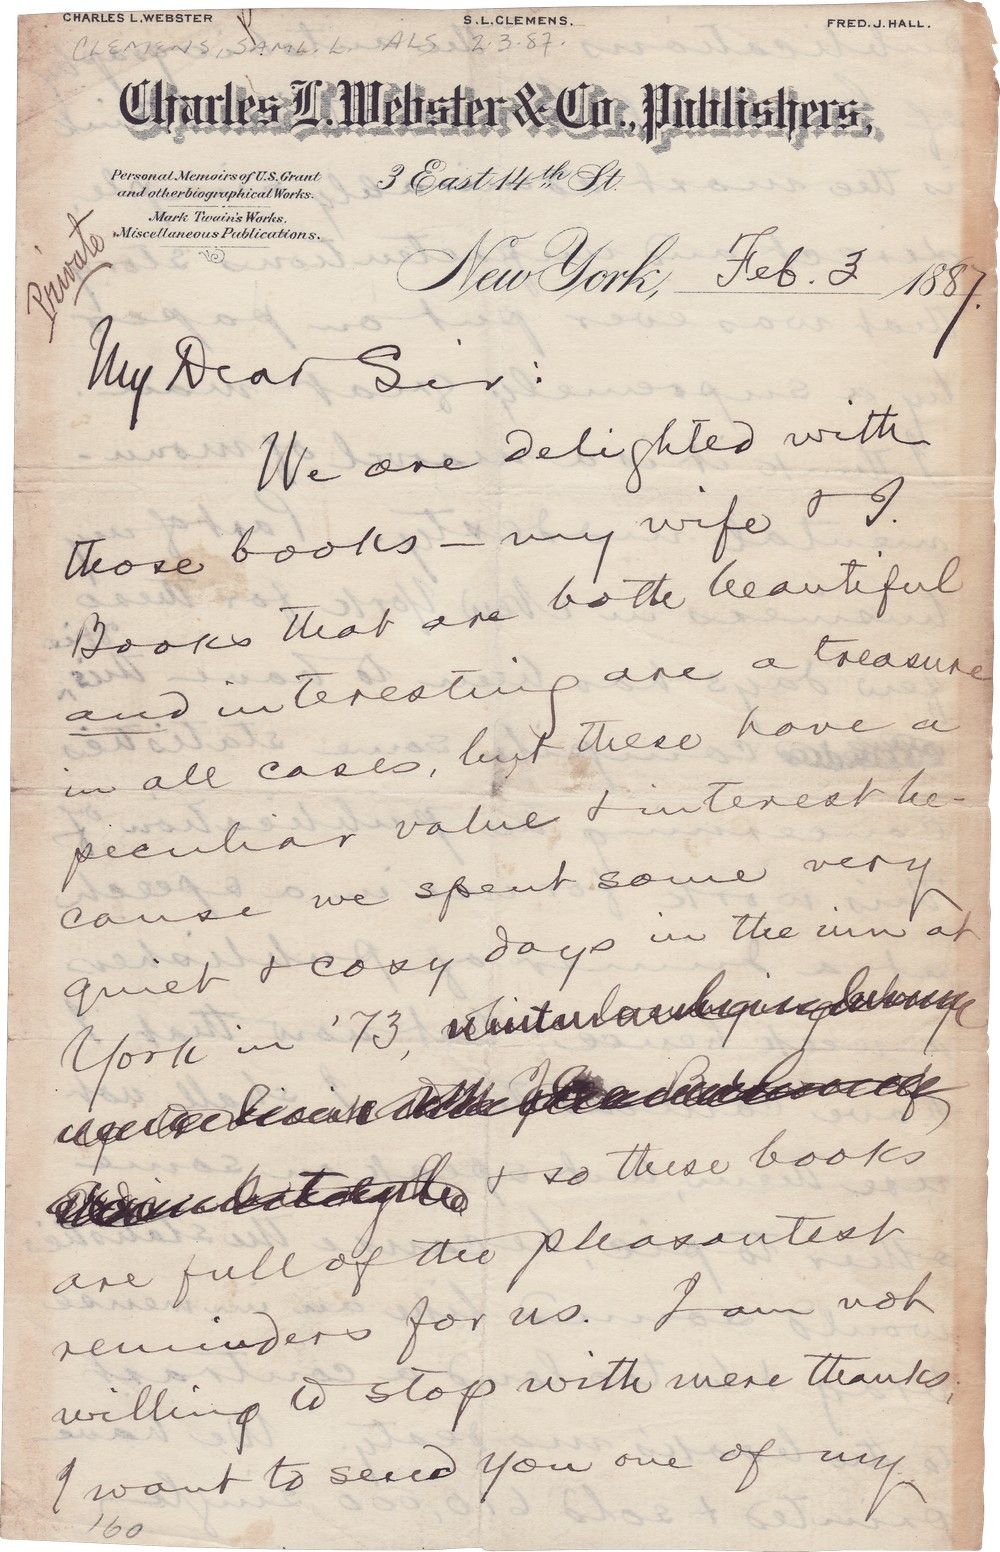 CHARLES L. WEBSTER S. L. CLEMENS. FRED. J. HALL.
CLEMENS, SAML. L. ALS 2.3.87.
Charles L. Webster & Co., Publishers,
Personal Memoirs of U.S. Grant
and other biographical Works.
Mark Twain's Works.
Miscellaneous Publications.
3 East 14th St.
Private
New York, Feb. 3 1887.
My Dear Sir:
We are delighted with
those books — my wife & I.
Books that are both beautiful
and interesting are a treasure
in all cases, but these have a
peculiar value & interest be-
cause we spent some very
quiet & cosy days in the inn at
York in '73,
& so these books
are full of the pleasantest
reminders for us. I am not
willing to stop with mere thanks;
I want to send you one of my
160